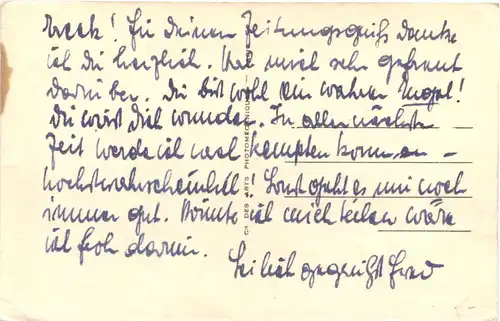 ! Für Deinen Zeitungsgruß danke
ich dir herzlich. Hat mich sehr gefreut
darüber. Du bist wohl ein wahrer Engel!
Du wirst Dich wundern. In aller nächster
Zeit werde ich nach Kempten kommen –
höchstwahrscheinlich! Sonst geht es mir noch
immer gut. Könnte ich mich teilen wäre
ich froh darum.
Sei lieb gegrüßt Fred
DES ARTS PHOTOMECHANIQUES